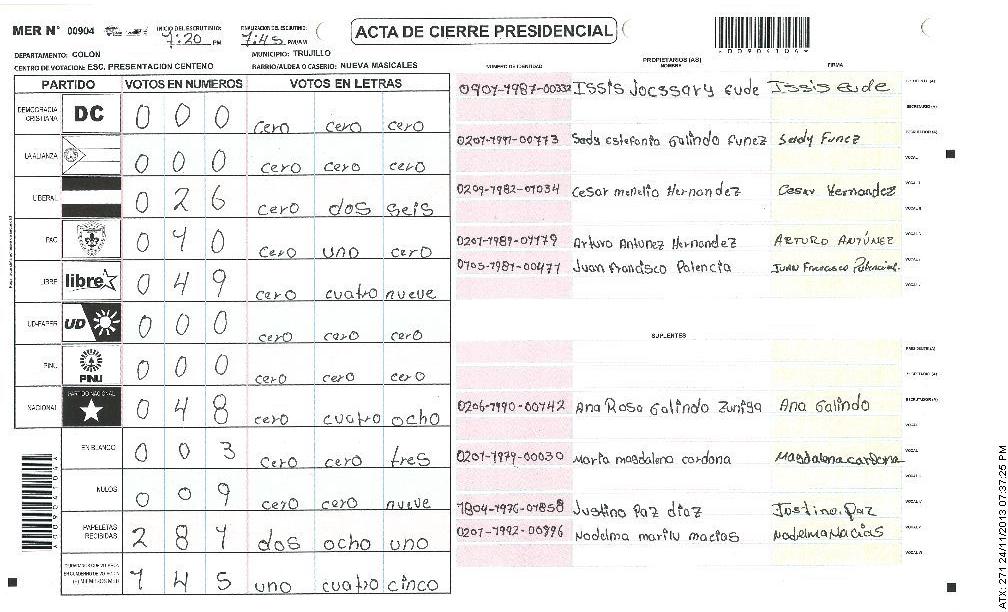 MER N° 00904 INICIO DEL ESCRUTINIO: 7:20 PM FINALIZACION DEL ESCRUTINIO: 7:45 PM/AM
ACTA DE CIERRE PRESIDENCIAL
DEPARTAMENTO: COLON MUNICIPIO: TRUJILLO
CENTRO DE VOTACION: ESC. PRESENTACION CENTENO BARRIO/ALDEA O CASERIO: NUEVA MASICALES
PARTIDO VOTOS EN NUMEROS VOTOS EN LETRAS
DEMOCRACIA CRISTIANA DC 0 0 0 cero cero cero
LA ALIANZA 0 0 0 cero cero cero
LIBERAL 0 2 6 cero dos seis
PAC 0 1 0 cero uno cero
LIBRE libre 0 4 9 cero cuatro nueve
UD-FAPER UD 0 0 0 cero cero cero
PINU PINU 0 0 0 cero cero cero
NACIONAL PARTIDO NACIONAL 0 4 8 cero cuatro ocho
EN BLANCO 0 0 3 cero cero tres
NULOS 0 0 9 cero cero nueve
PAPELETAS RECIBIDAS 2 8 1 dos ocho uno
1 4 5 uno cuatro cinco
PROPIETARIOS (AS)
NUMERO DE IDENTIDAD NOMBRE FIRMA
0907-1987-00332 Issis Jocssary Eude Issis Eude
0207-1991-00773 Sady Estefania Galindo Funez Sady Funez
0209-1982-01034 Cesar menelio Hernandez Cesar Hernandez
0207-1989-01179 Arturo Antunez Hernandez ARTURO ANTÚNEZ
0705-1981-00477 Juan Francisco Palencia
SUPLENTES
0206-1990-00742 Ana Rosa Galindo Zuniga Ana Galindo
0207-1979-00030 Maria magdalena cardona Magdalena cardona
1804-1976-01858 Justino Paz diaz Justino Paz
0207-1992-00396 Nodelma marilu macias Nodelma Macias
ATX: 271 24/11/2013 07:37:25 PM